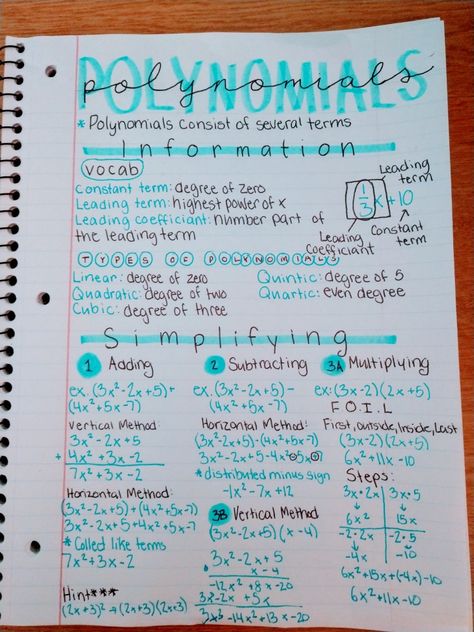 POLYNOMIALS
polynomials
* Polynomials consist of several terms
Information
vocab
Constant term: degree of zero
Leading term: highest power of x
Leading coefficiant: number part of
the leading term
Leading
term
1/3 x + 10
Leading
Coefficiant
Constant
term
TYPES OF POLYNOMIALS
Linear: degree of zero
Quadratic: degree of two
Cubic: degree of three
Quintic: degree of 5
Quartic: even degree
Simplifying
1 Adding
ex. (3x²-2x+5)+
(4x²+5x-7)
Vertical Method:
3x²-2x+5
+ 4x²+3x-2
7x²+3x-2
Horizontal Method:
(3x²-2x+5)+(4x²+5x-7)
3x²-2x+5+4x²+5x-7
* Colled like terms
7x²+3x-2
Hint***
(2x+3)²→(2x+3)(2x+3)
2 Subtracting
ex. (3x²-2x+5)-
(4x²+5x-7)
Horizontal Method:
(3x²-2x+5)-(4x²+5x-7)
3x²-2x+5-4x²-5x+7
* distributed minus sign
-1x²-7x+12
3B Vertical Method
(3x²-2x+5)(x-4)
3x²-2x+5
x-4
-12x²+8x-20
-14x²+13x-20
3A Multiplying
ex: (3x-2)(2x+5)
F.O.I.L
First, outside, Inside, Last
(3x-2)(2x+5)
6x²+11x-10
Steps:
3x•2x 3x•5
6x² 15x
-2•2x -2•5
-4x -10
6x²+15x+(-4x)-10
6x²+11x-10